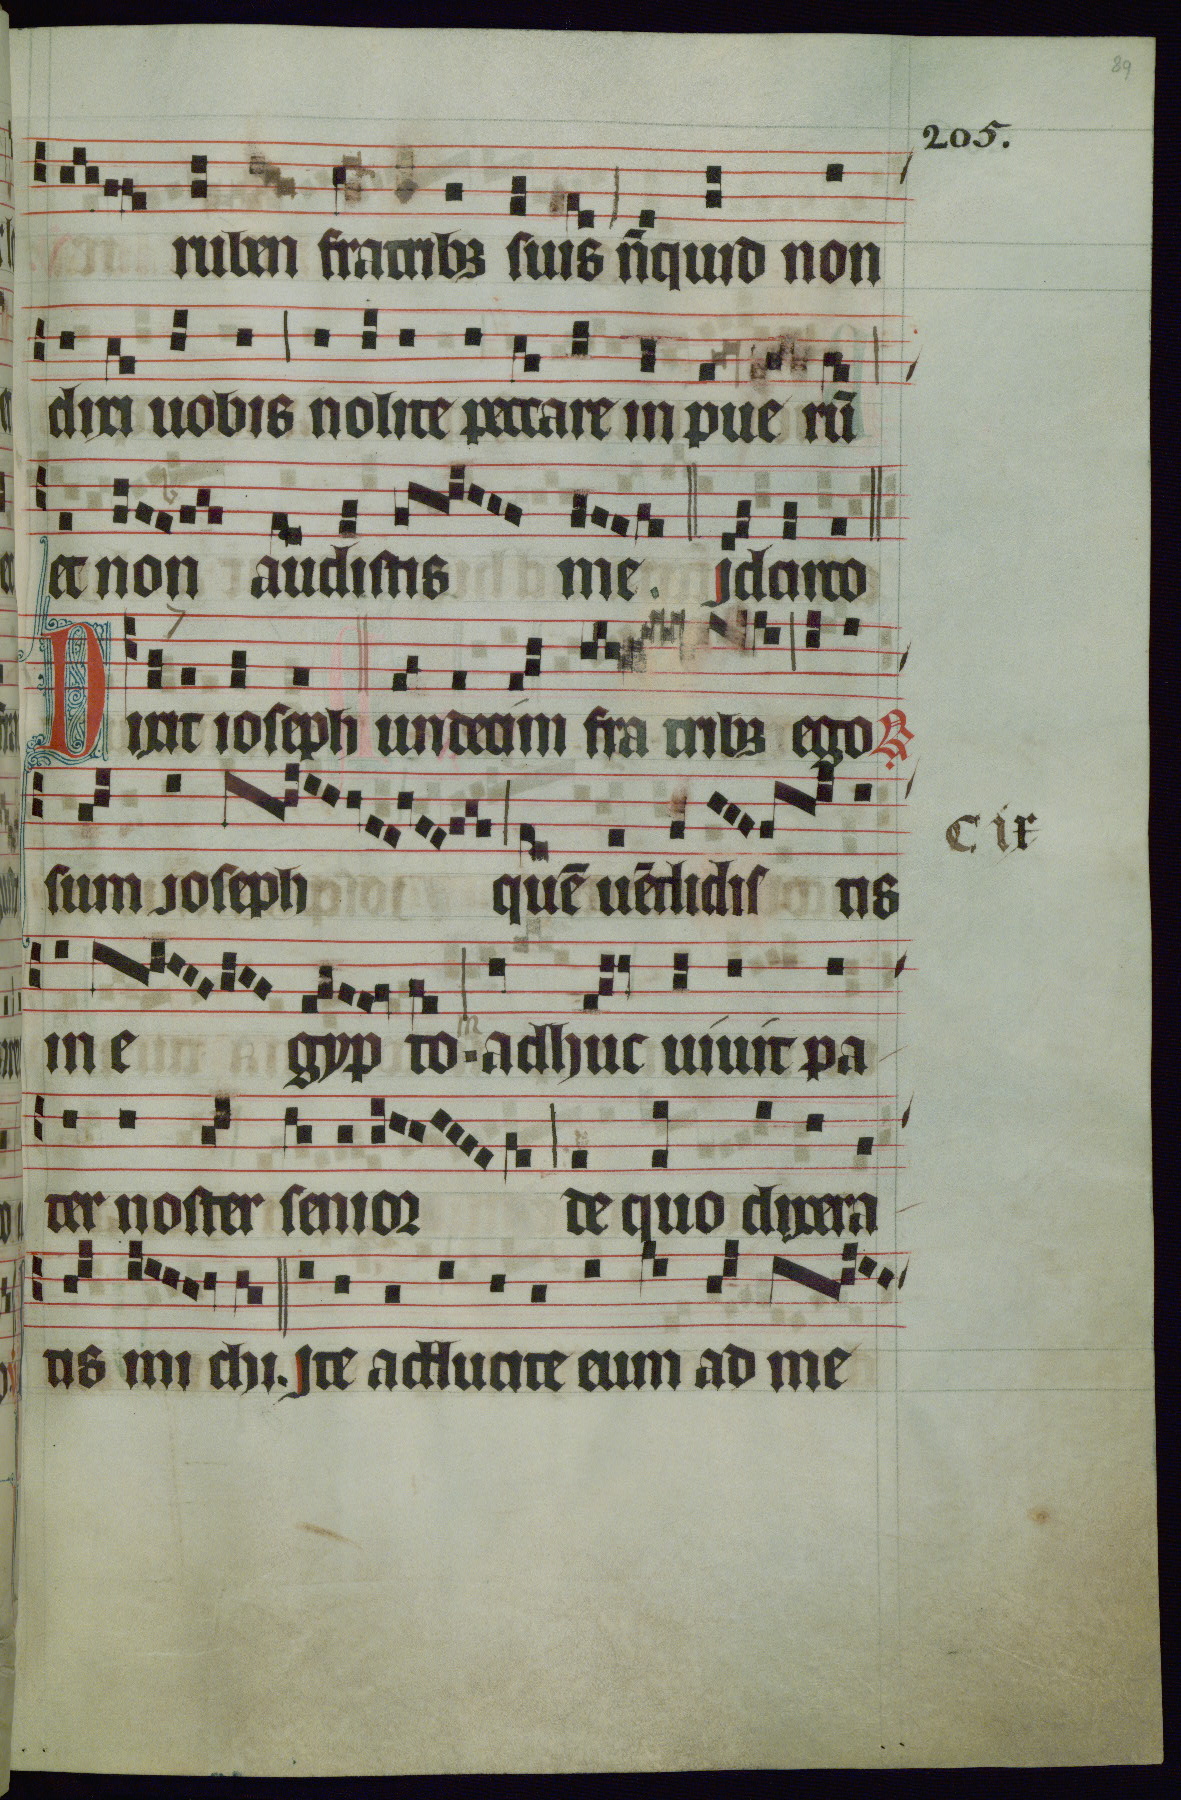 89
205.
ruben fratribꝫ suis nũquid non
dixi uobis nolite peccare in pue rũ
et non audistis me. jdcirco
Dixit ioseph undecim fra tribꝫ ego ℟
sum joseph quẽ uẽdidis tis
C ix
in e gyp to. adhuc uiuit pa
ter noster senior de quo dixera
tis mi chi. jte adducite eum ad me